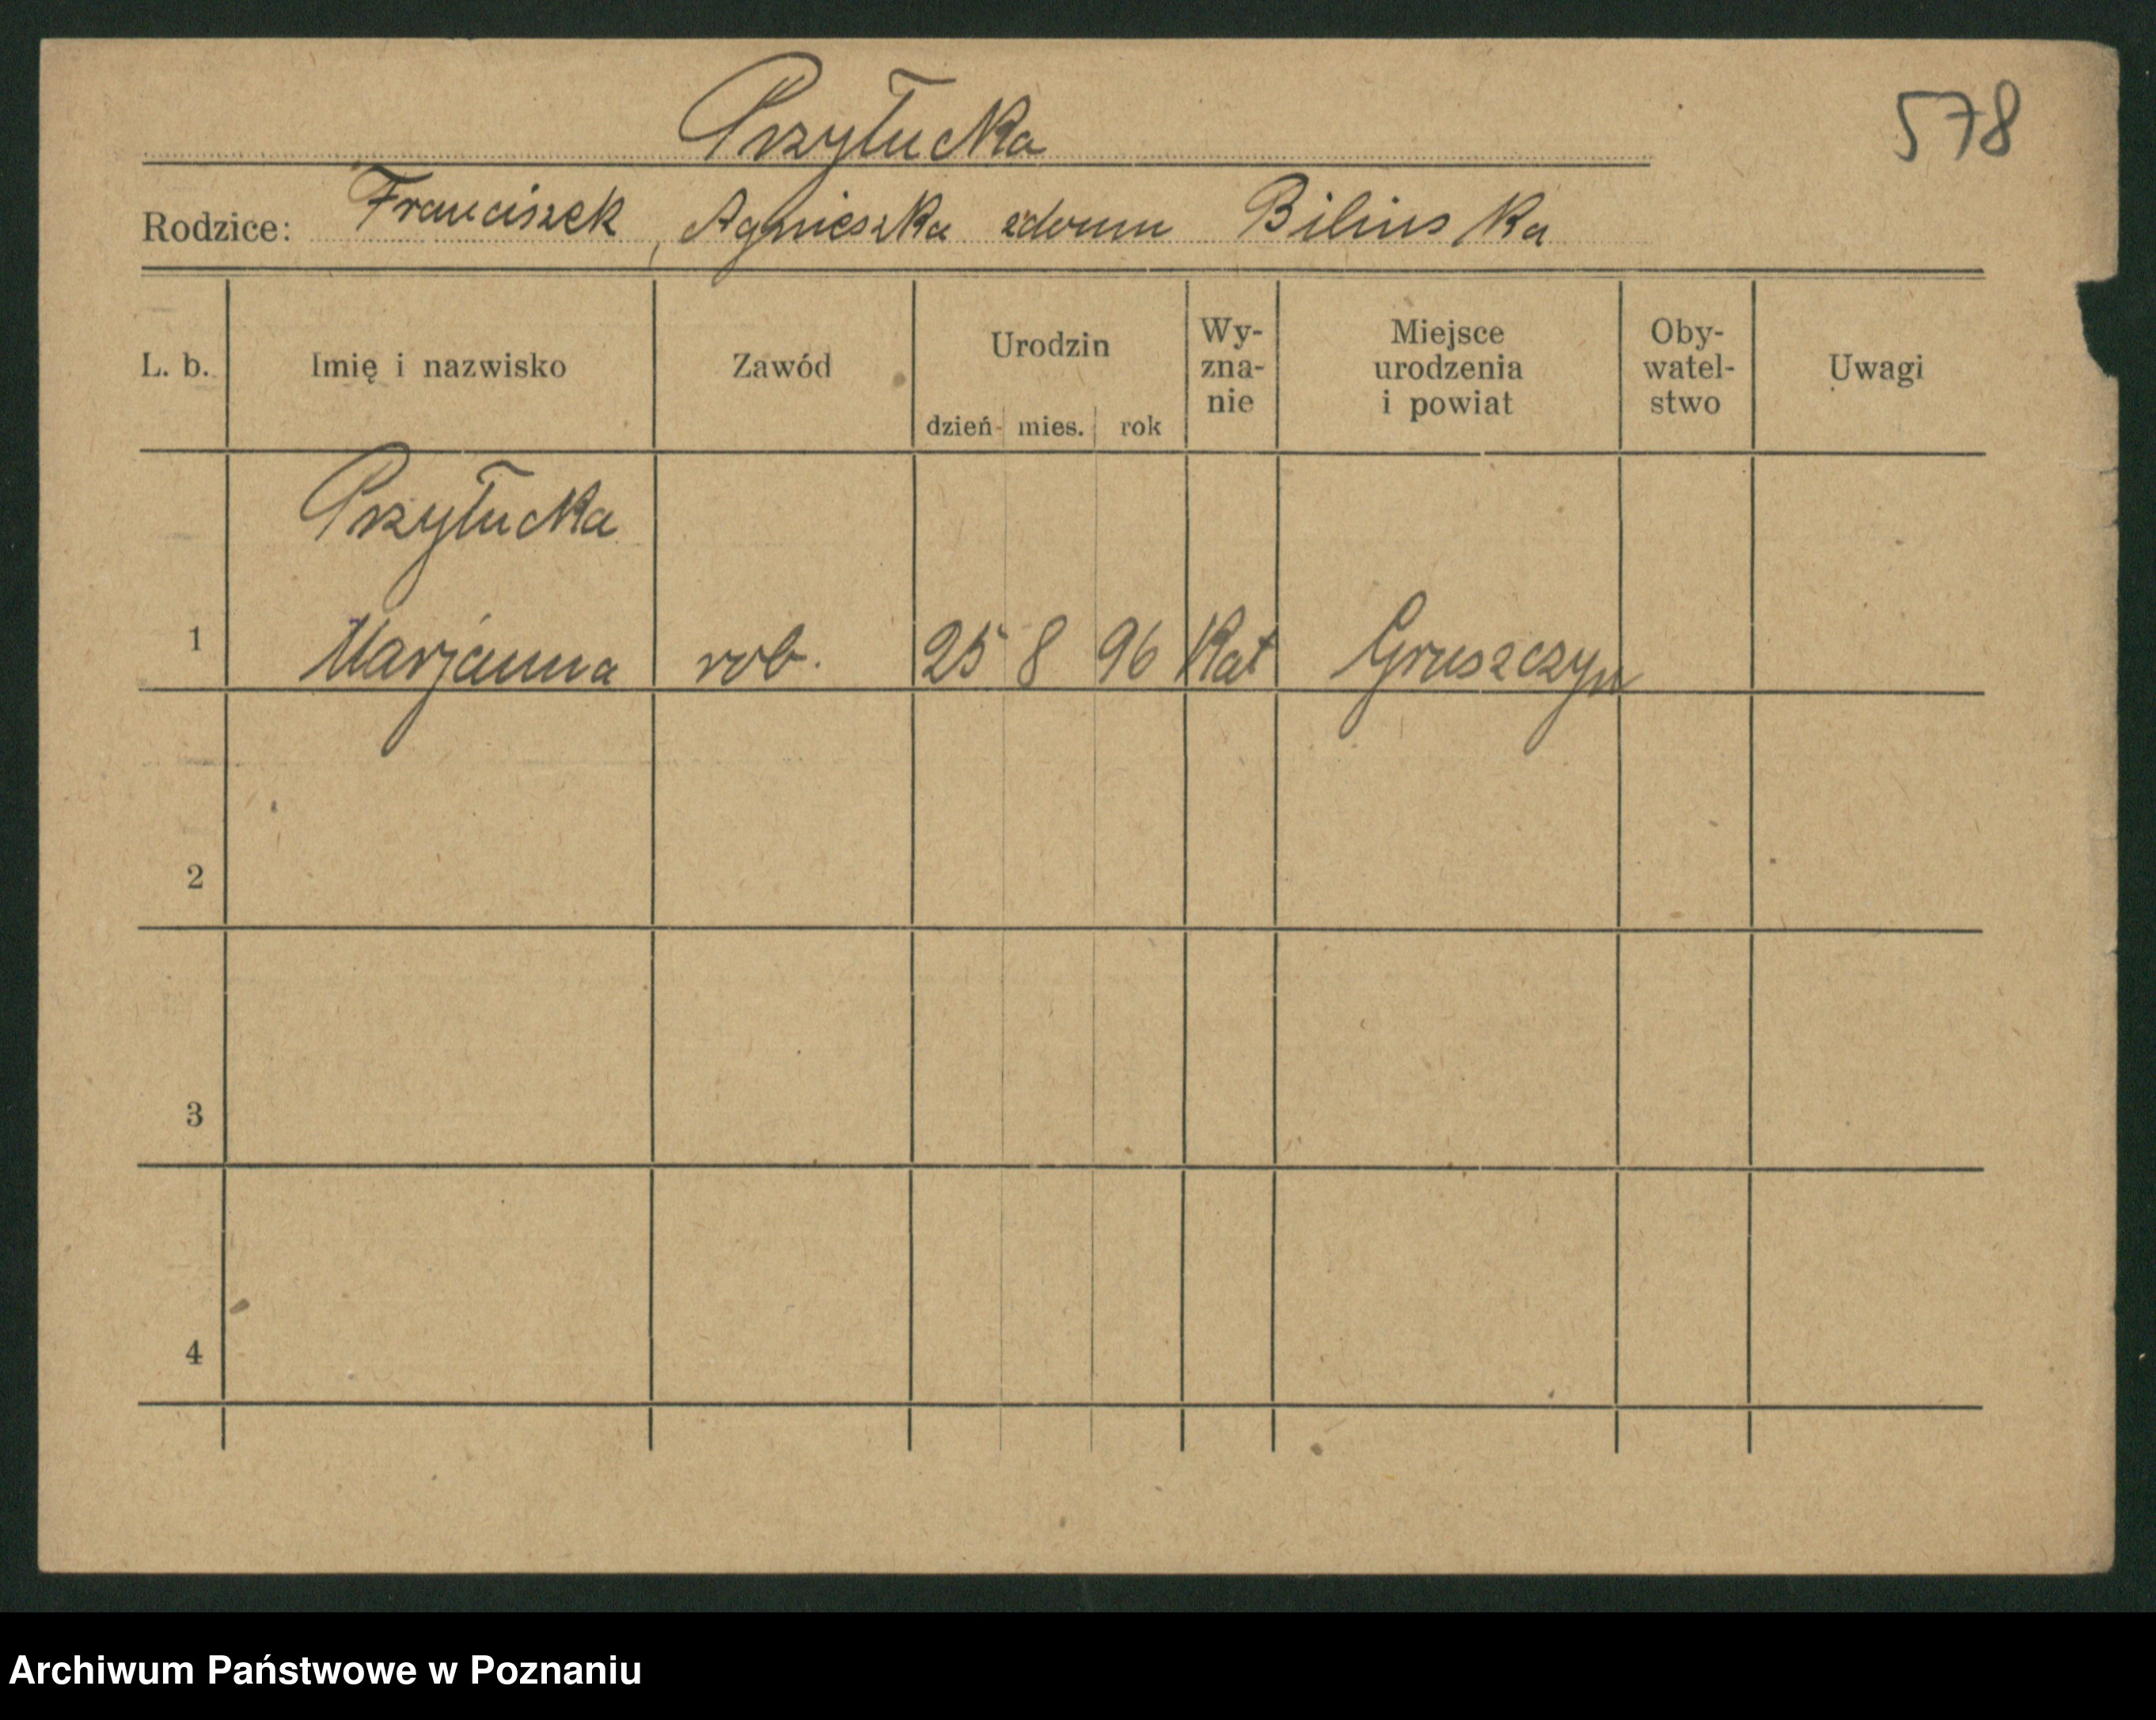 578
Przyłucka
Rodzice: Franciszek, Agnieszka zdomu Bilinska
L. b. Imię i nazwisko Zawód Urodzin dzień mies. rok Wy-zna-nie Miejsce urodzenia i powiat Oby-watel-stwo Uwagi
Przyłucka
1 Marjanna rob. 25 8 96 Kat Gruszczyn
2
3
4
Archiwum Państwowe w Poznaniu